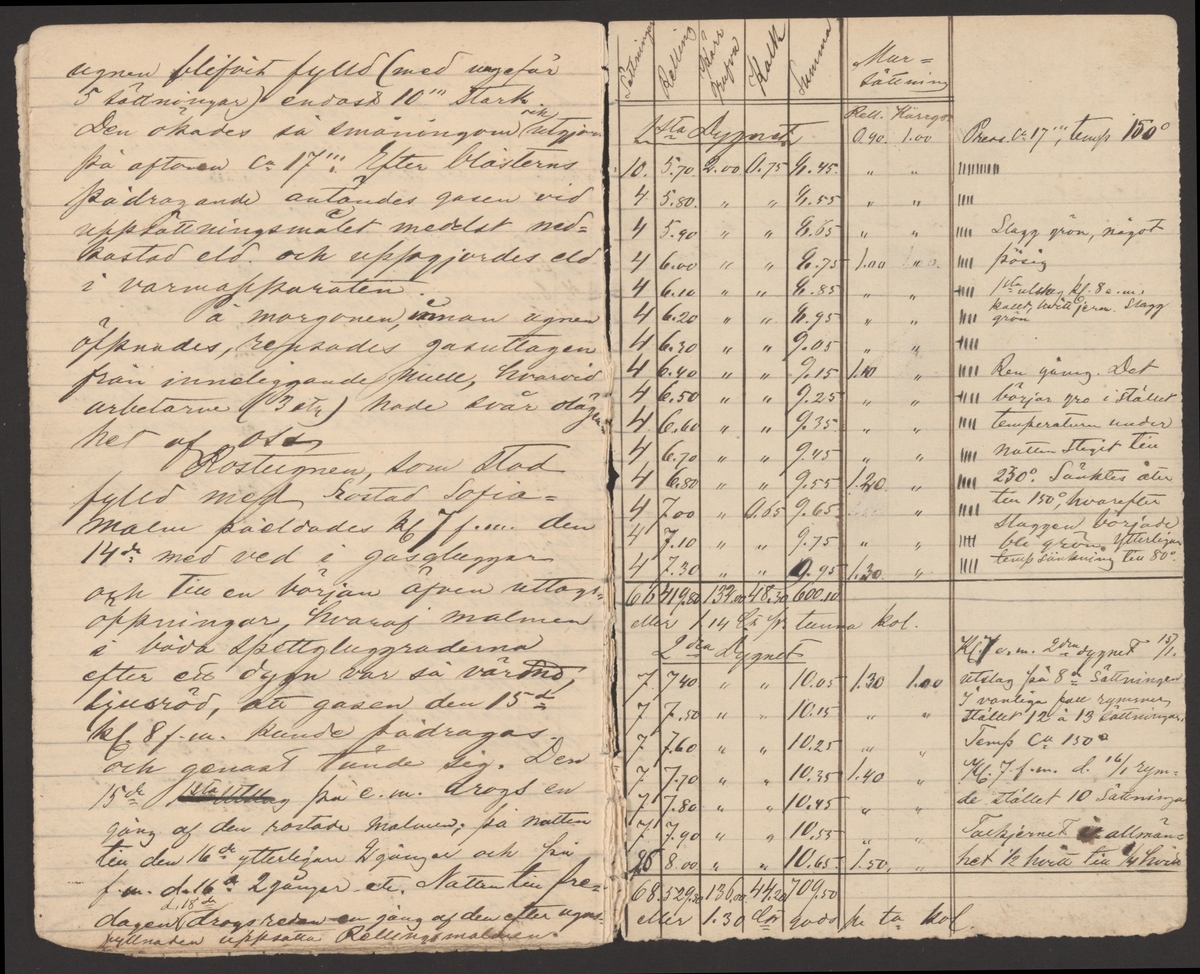 ugnen blifvit fylld (med ungefär
5 sättningar) endast 10''' stark
Den ökades så småningom och utgjorde
på aftonen ca 17'''. Efter blästerns
pådragande antändes gasen vid
uppsättningsmålet medelst ned=
kastad eld. och uppgjordes eld
i varmapparaten
Å morgonen, innan ugnen
öppnades, rensades gasuttagen
från inneliggande mull, hvarvid
arbetarne (3 st) hade svår olägen=
het af os.
Rostugnen, som stod
fylld med rostad Sofia=
malm påeldades kl 7 f.m. den
14de med ved i gasgluggar
och till en början äfven uttags=
öppningar, hvaraf malmen
i båda spettgluggraderna
efter ett dygn var så värmd,
ljusröd, att gasen den 15de
kl. 8 f.m. kunde pådragas
och genast tände sig. Den
15de på e.m. drogs en
gång af den rostade malmen; på natten
till den 16de ytterligare 2 gånger och på
f.m. d. 16de 2 gånger etc. Natten till fre=
dagen d. 18de drogs redan en gång af den efter ugns
fyllnaden uppsatta Rellingsmalmen.
Sättningar Relling Kärr grufva Kalk Summa Mur=
sättning
Rell. Kärrgr.
1sta Dygnet 0.90 1.00 Press. ca 17''', temp 150°
10. 5.70 2.00 0.75 8.45 " " IIIIIIIIII
4 5.80. " " 8.55 " " IIII
4 5.90 " " 8.65 " " IIII Slagg grön, något
4 6.00 " " 8.75 1.00 IIII pösig
4 6.10 " " 8.85 " " IIII 1sta utslag kl. 8 e.m.
4 6.20 " " 8.95 " " IIII kallt, hvitt jern. Slagg
grön
4 6.30 " " 9.05 " " IIII
4 6.40 " " 9.15 1.10 " IIII Ren gång. Det
4 6.50 " " 9.25 " " IIII börjar gro i stället
4 6.60 " " 9.35 " " IIII temperaturn under
4 6.70 " " 9.45 " " IIII natten stigit till
4 6.80 " " 9.55 1.20 " IIII 230°. Sänktes åter
4 7.00 " 0.65 9.65 " IIII till 150°, hvarefter
slaggen började
4 7.10 " " 9.75 " " IIII bli grön. Ytterligare
4 7.30 " " 9.95 1.30 " IIII temp sänkning till 80°.
66 419.80 132.00 48.30 600.10
eller 1.14 Ctr pr tunna kol.
2dra Dygnet Kl. 7 e.m. 2dra dygnet 15/1.
7 7.40 " " 10.05 1.30 1.00 utslag på 8de sättningen
7 7.50 " " 10.15 " " I vanliga fall rymmer
stället 12 à 13 sättningar.
7 7.60 " " 10.25 " " Temp ca 150°
7 7.70 " " 10.35 1.40 " Kl. 7 f.m. d. 16/1 rym=
7 7.80 " " 10.45 " " de stället 10 sättningar
7 7.90 " " 10.55 " " Tackjernet i allmän=
26 8.00 " " 10.65 1.50. " het 1/2 hvitt till 1/4 hvitt
68. 529.30 136.00 44.20 709.50
eller 1.30 Ctr gods pr ta kol.